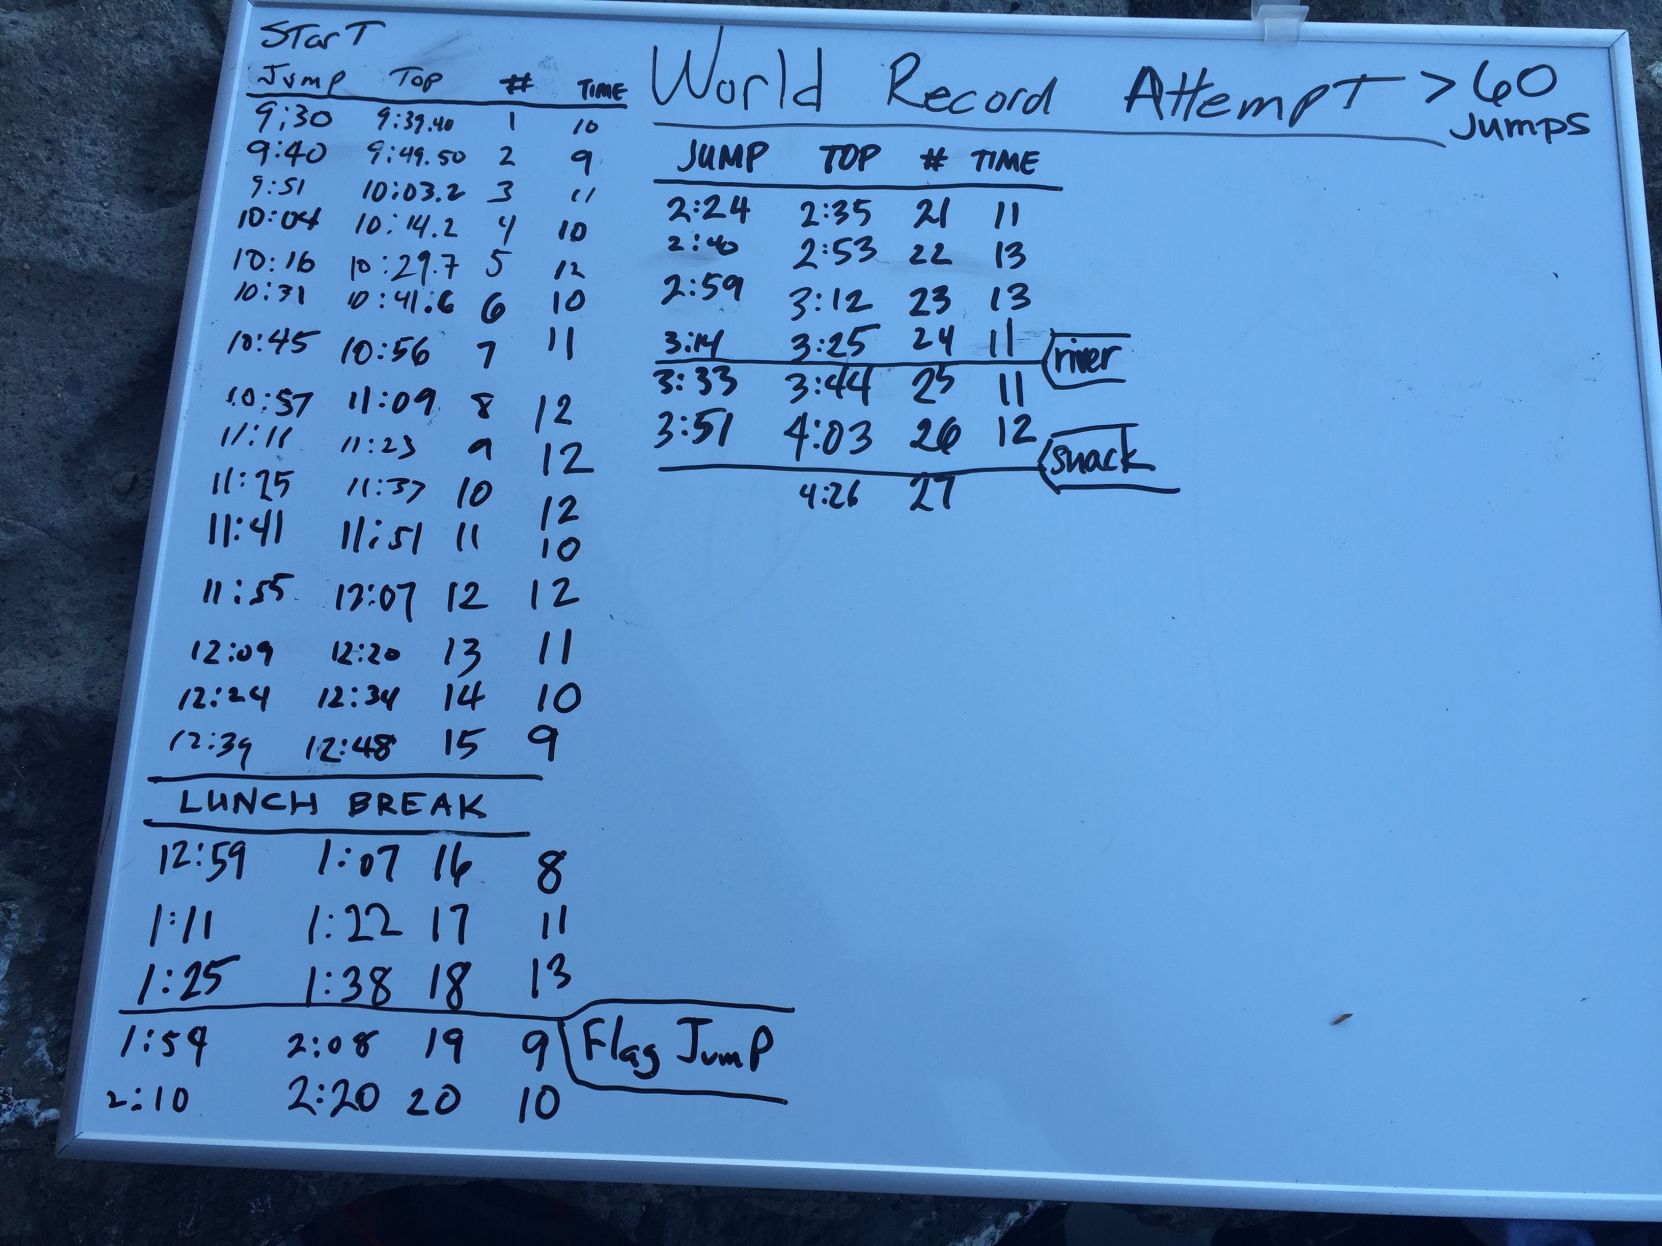 Start
Jump Top # TIME
9:30 9:39.40 1 10
9:40 9:49.50 2 9
9:51 10:03.2 3 11
10:04 10:14.2 4 10
10:16 10:29.7 5 12
10:31 10:41.6 6 10
10:45 10:56 7 11
10:57 11:09 8 12
11:11 11:23 9 12
11:25 11:37 10 12
11:41 11:51 11 10
11:55 12:07 12 12
12:09 12:20 13 11
12:24 12:34 14 10
12:39 12:48 15 9
LUNCH BREAK
12:59 1:07 16 8
1:11 1:22 17 11
1:25 1:38 18 13
1:59 2:08 19 9 Flag Jump
2:10 2:20 20 10
World Record Attempt >60
Jumps
JUMP TOP # TIME
2:24 2:35 21 11
2:40 2:53 22 13
2:59 3:12 23 13
3:14 3:25 24 11 river
3:33 3:44 25 11
3:51 4:03 26 12 snack
4:26 27